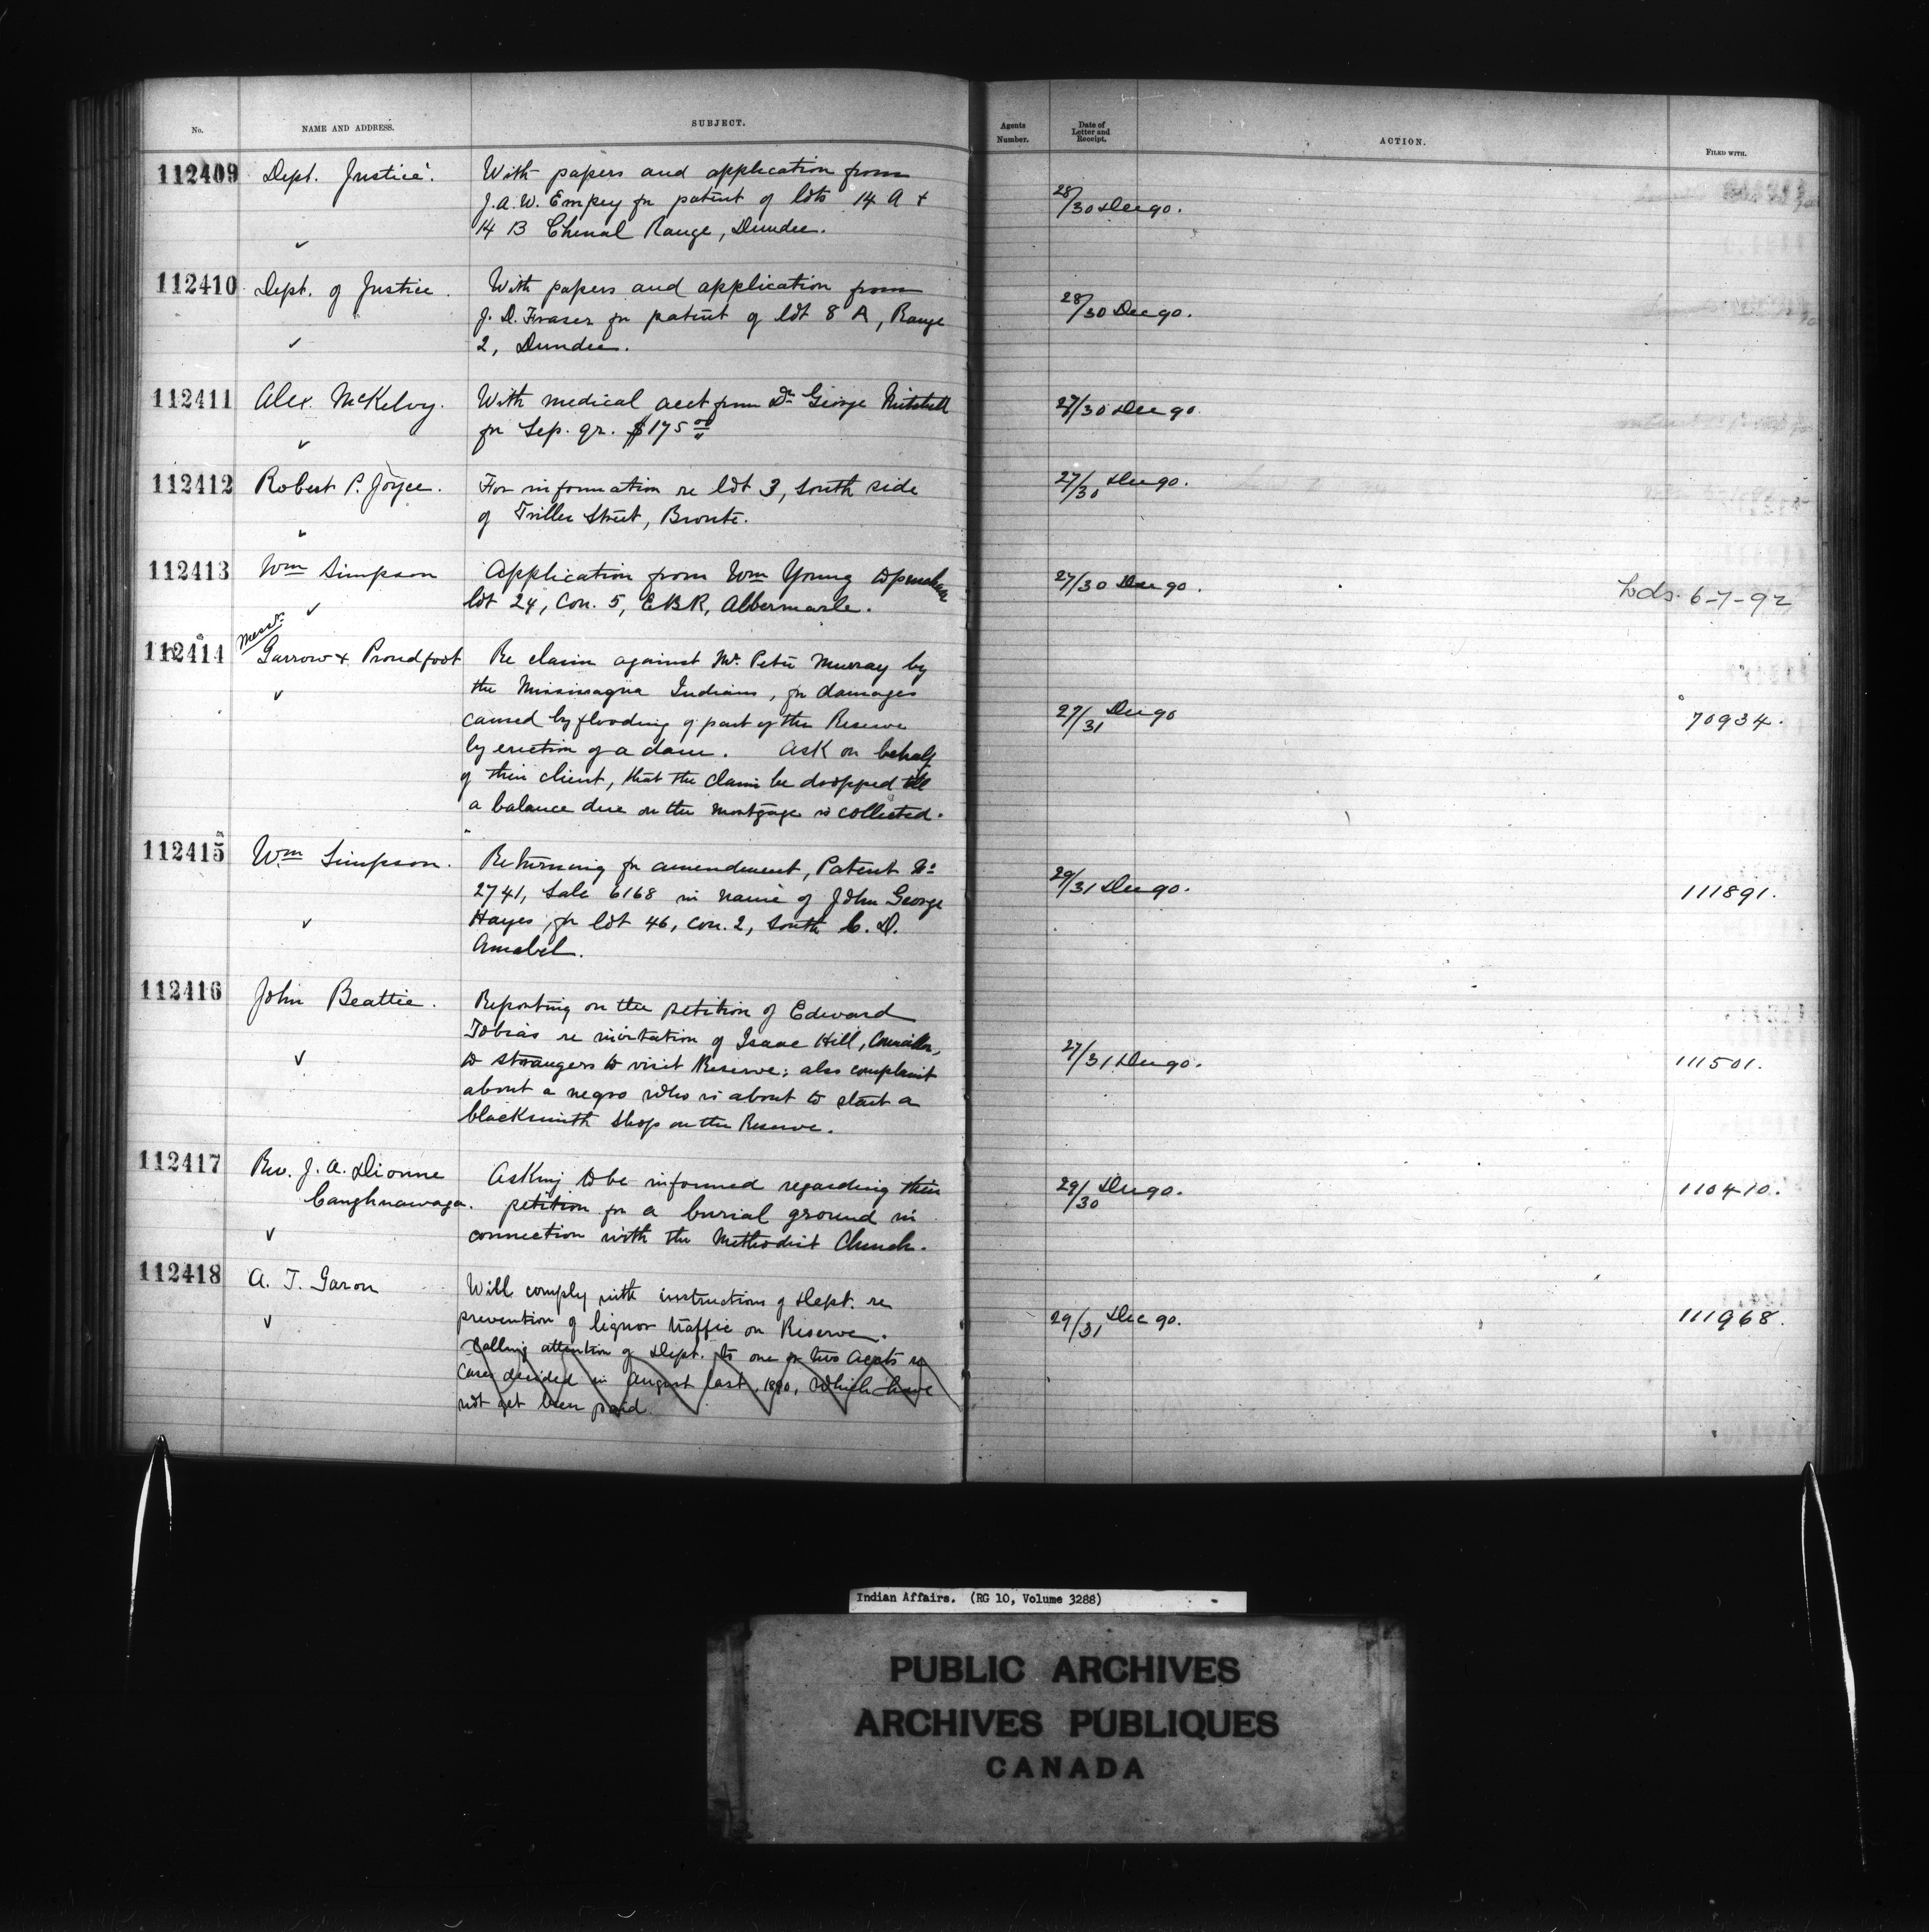 No. NAME AND ADDRESS. SUBJECT. Agents Number. Date of Letter and Receipt. ACTION. FILED WITH.
112409 Dept. Justice. With papers and application from
J.A.W. Empey for patent of lots 14 A +
14 B Chenal Range, Dundee.
28/30 Dec 90.
112410 Dept. of Justice. With papers and application from
J. D. Fraser for patent of lot 8 A, Range
2, Dundee.
28/30 Dec 90.
112411 Alex. McKelvy. With medical acct from Dr George Mitchell
for Sep. qr. $175 00
27/30 Dec 90
112412 Robert P. Joyce. For information re lot 3, South side
of Triller Street, Bronte.
27/30 Dec 90.
112413 Wm Simpson Application from Wm Young to purchase
lot 24, Con. 5, EBR, Albermarle.
27/30 Dec 90. Lds. 6-7-92
112414 Messrs. Garrow & Proudfoot Re claim against Mr. Peter Murray by
the Mississagua Indians, for damages
caused by flooding of part of their Reserve
by erection of a dam. Ask on behalf
of their client, that the claim be dropped till
a balance due on the mortgage is collected.
27/31 Dec 90 70934.
112415 Wm Simpson. Returning for amendment, Patent No
2741, Sale 6168 in name of John George
Hayes, for lot 46, Con. 2, South C. D.
Amabel.
29/31 Dec 90. 111891.
112416 John Beattie. Reporting on the petition of Edward
Tobias re invitation of Isaac Hill, Councillor,
to strangers to visit Reserve; also complaint
about a negro who is about to start a
blacksmith shop on the Reserve.
27/31 Dec 90. 111501.
112417 Rev. J. A. Dionne Asking to be informed regarding their
Caughnawaga. petition for a burial ground in
connection with the Methodist Church.
29/30 Dec 90. 110410.
112418 A. T. Garon Will comply with instructions of Dept. re
prevention of liquor traffic on Reserve.
Calling attention of Dept. to one or two accts re
cases decided in August last, 1890, which have
not yet been paid.
29/31 Dec 90. 111968.
Indian Affairs. (RG 10, Volume 3288)
PUBLIC ARCHIVES
ARCHIVES PUBLIQUES
CANADA